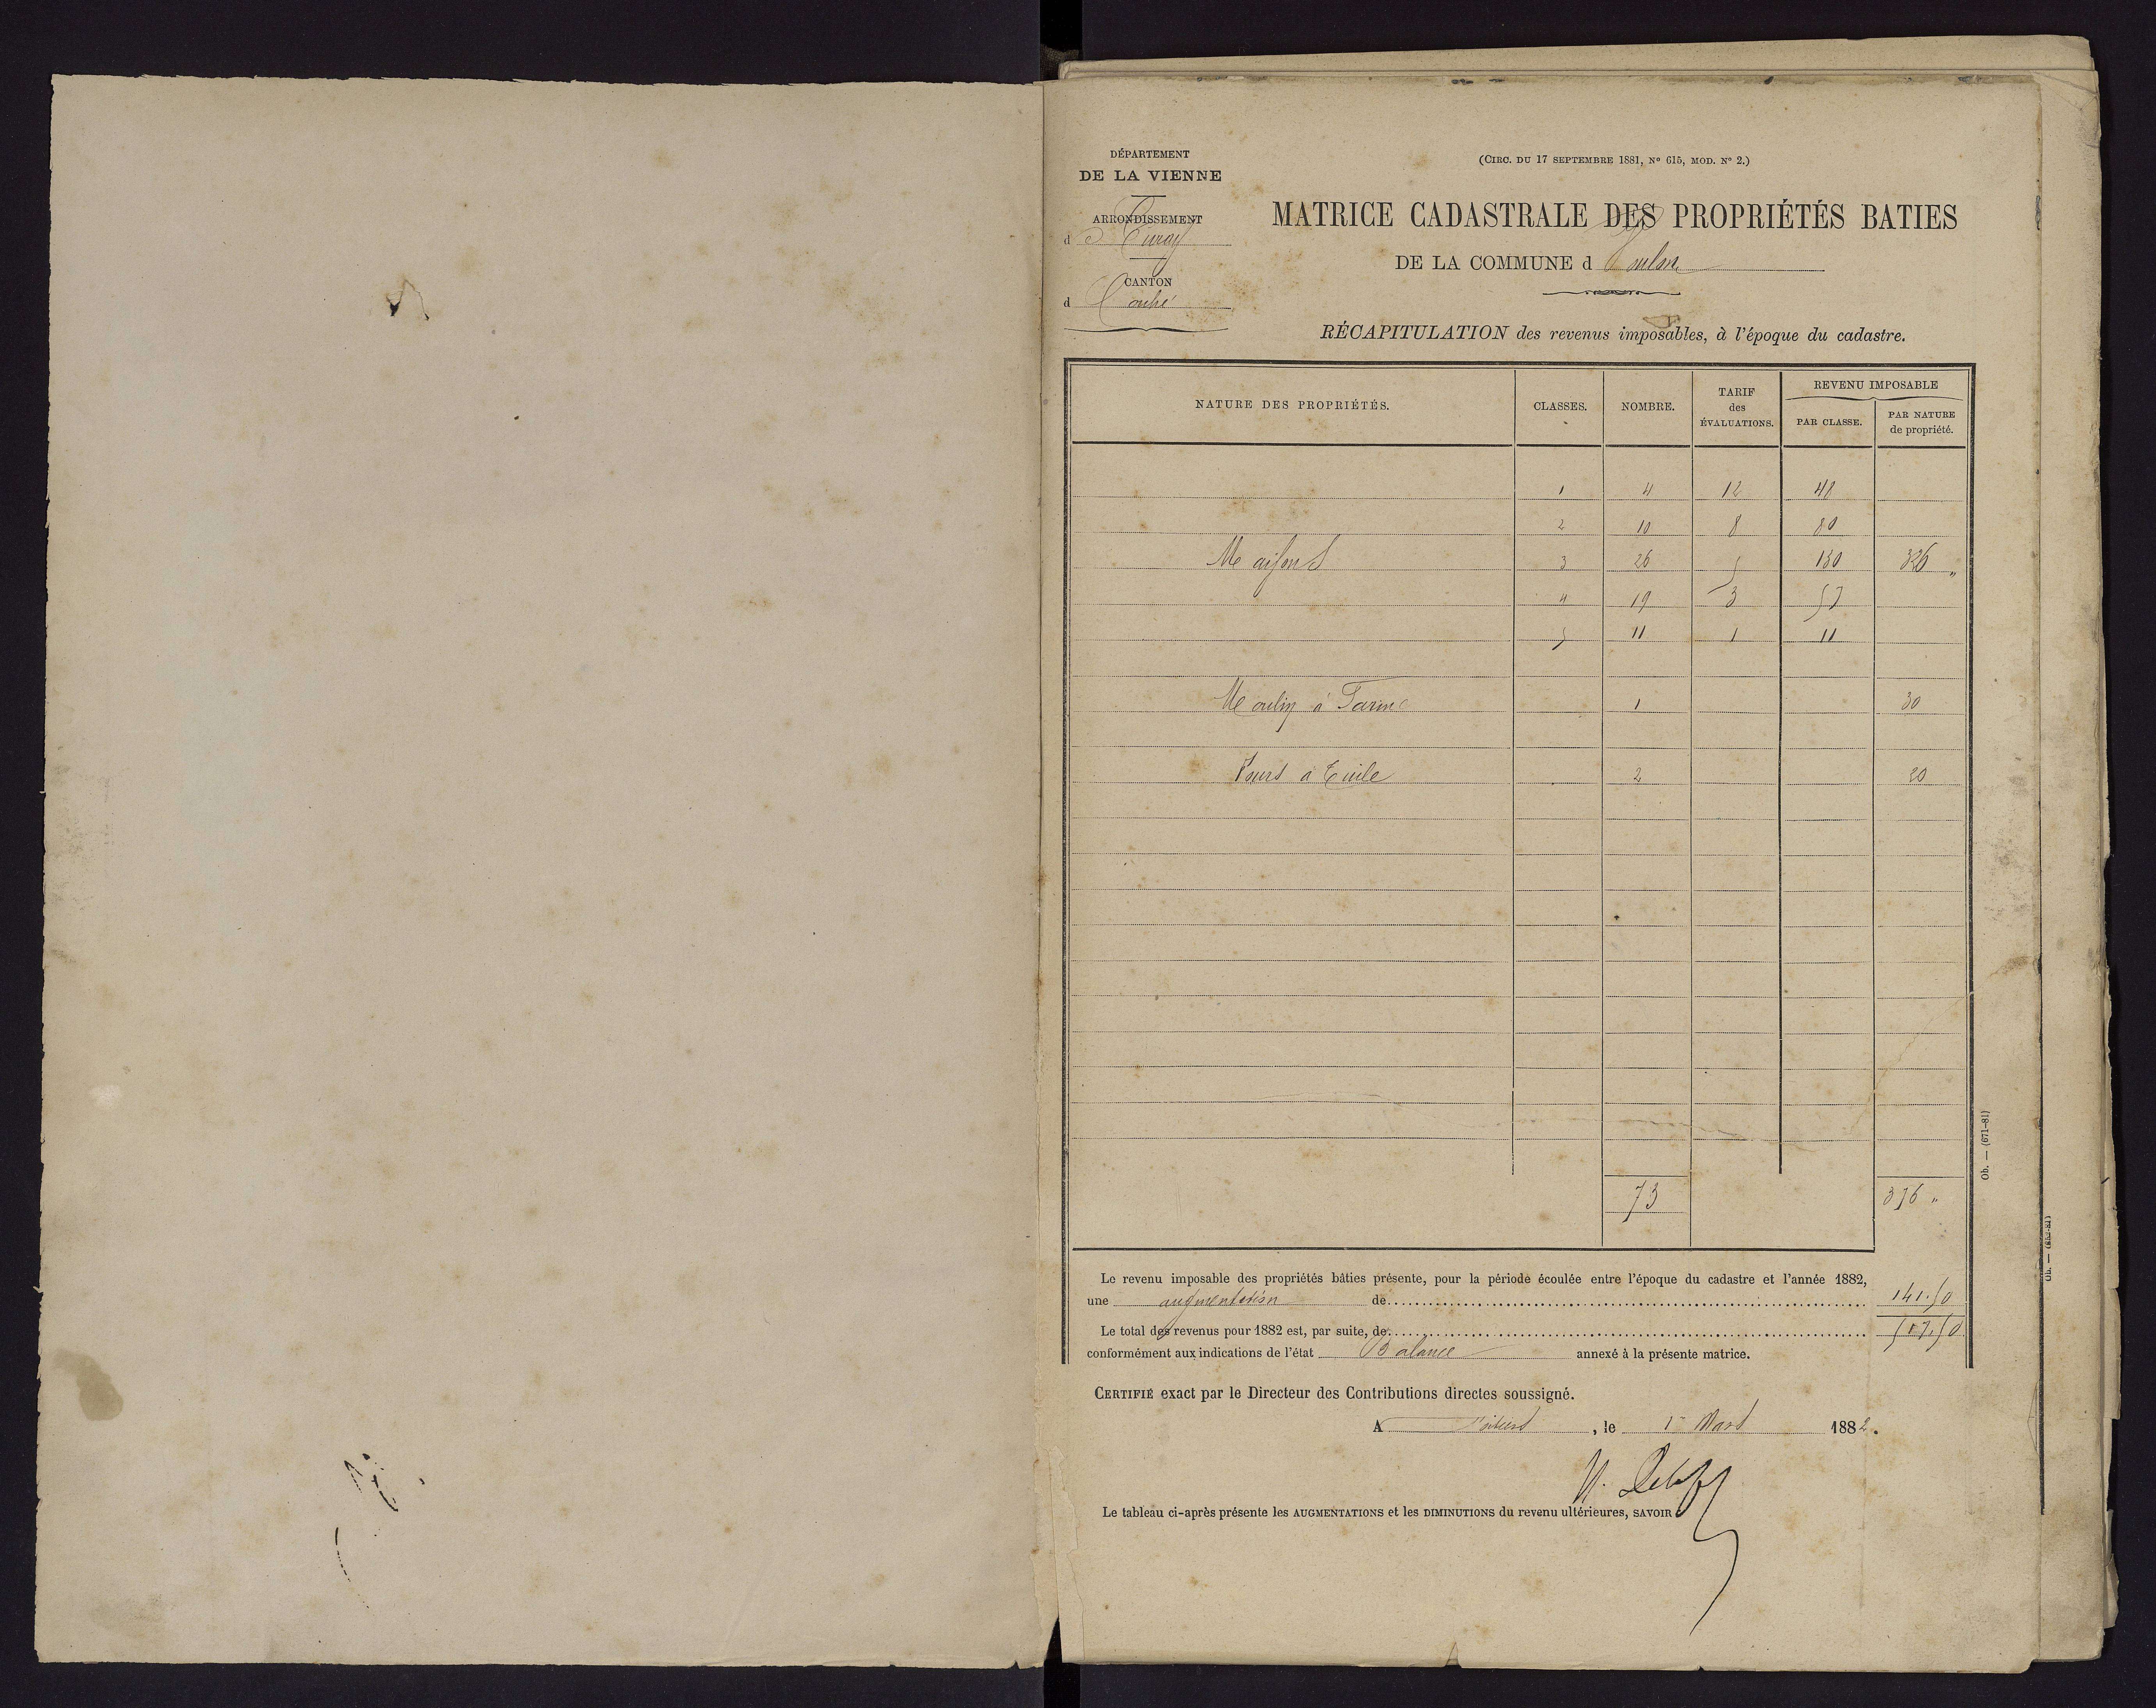 DÉPARTEMENT
DE LA VIENNE
ARRONDISSEMENT
de Civray
CANTON
d Couhé
(CIRC. DU 17 SEPTEMBRE 1881, Nº 615, MOD. Nº 2.)
MATRICE CADASTRALE DES PROPRIÉTÉS BATIES
DE LA COMMUNE d Voulon
RÉCAPITULATION des revenus imposables, à l'époque du cadastre.
NATURE DES PROPRIÉTÉS. CLASSES. NOMBRE. TARIF des ÉVALUATIONS. REVENU IMPOSABLE PAR CLASSE. PAR NATURE de propriété.
1 4 12 48
2 10 8 80
Maisons 3 26 5 130 326 "
4 19 3 57
5 11 1 11
Moulin à Farine 1 30
Fours à Tuile 2 20
73 376 "
Le revenu imposable des propriétés bâties présente, pour la période écoulée entre l'époque du cadastre et l'année 1882,
une augmentation de 141.50
Le total des revenus pour 1882 est, par suite, de 517.50
conformément aux indications de l'état Balance annexé à la présente matrice.
CERTIFIÉ exact par le Directeur des Contributions directes soussigné.
A Poitiers, le 1er Mars 1882.
Le tableau ci-après présente les AUGMENTATIONS et les DIMINUTIONS du revenu ultérieures, SAVOIR
Ob. — (671-81)